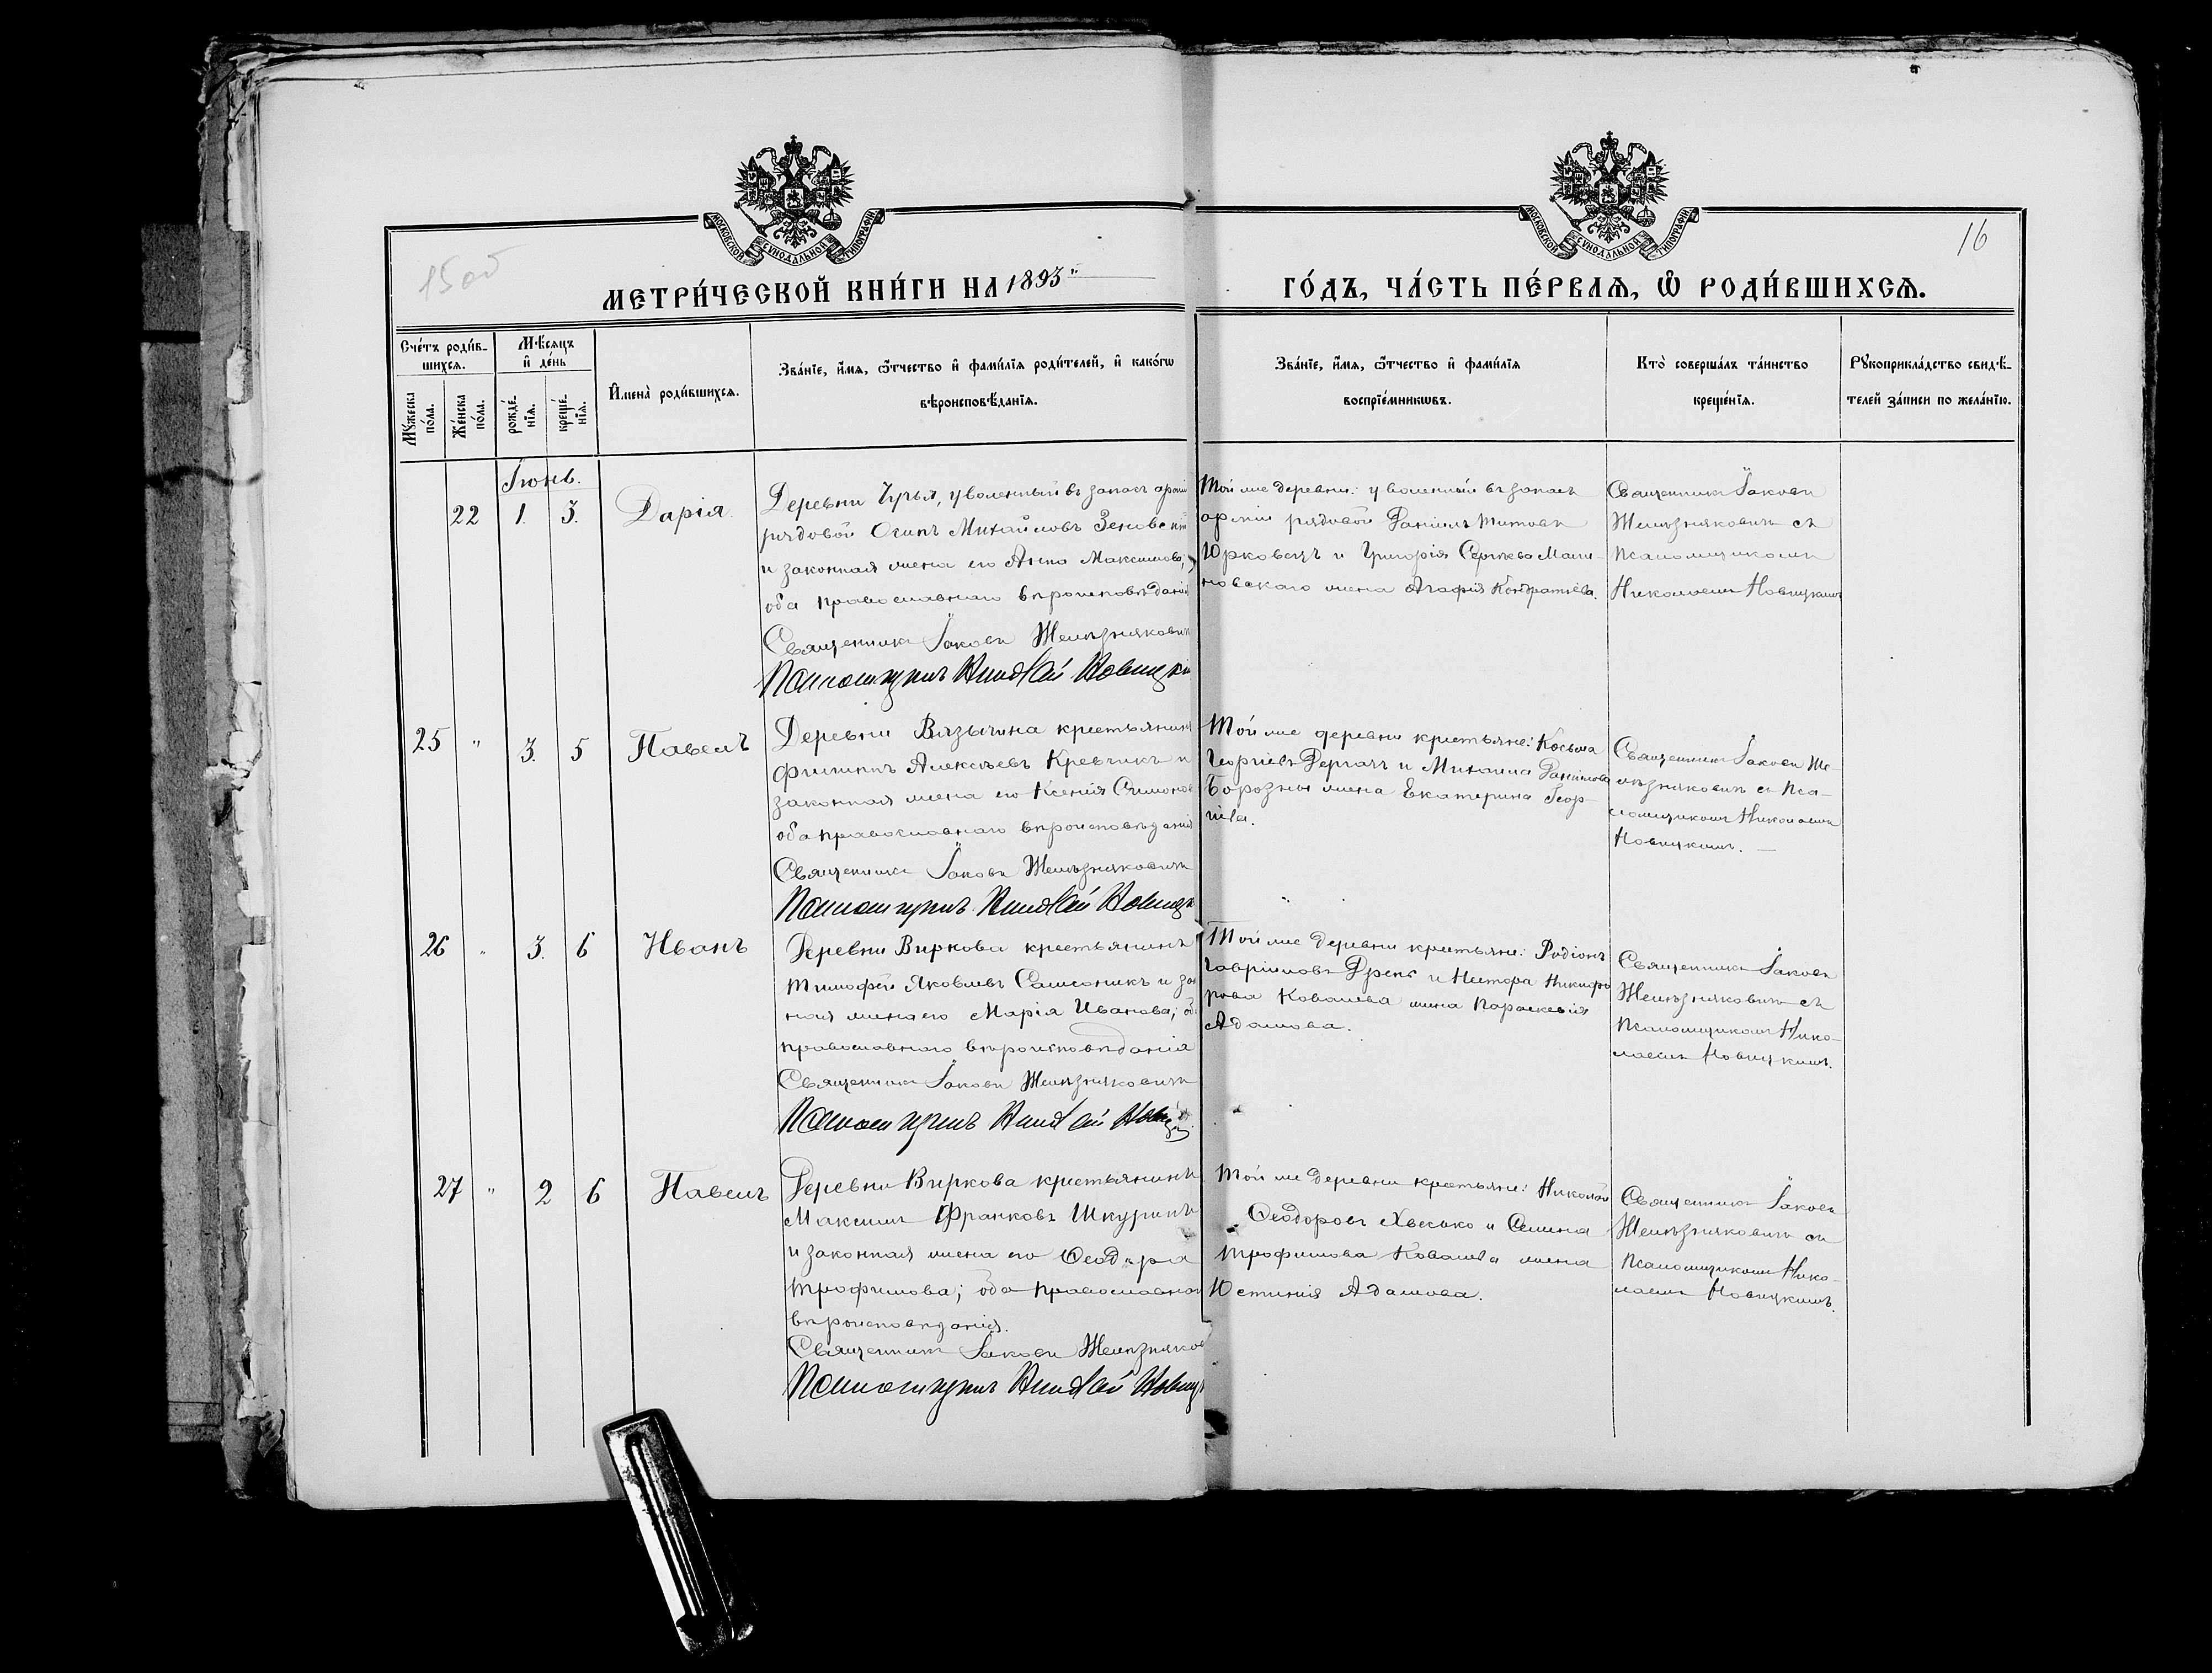 15об
16
МОСКОВСКОЙ СѴНОДАЛЬНОЙ ТИПОГРАФІИ
МОСКОВСКОЙ СѴНОДАЛЬНОЙ ТИПОГРАФІИ
МЕТРИ́ЧЕСКОЙ КНИ́ГИ НА 1893
ГО́ДЪ, ЧА́СТЬ ПЕ́РВАѦ, Ѽ РОДИ́ВШИХСѦ.
Сче́тъ роди́в-
шихсѧ.
Мѣ́сѧцъ
и҆ де́нь
Мꙋ́жеска
по́ла.
Же́нска
по́ла.
рожде́-
нїѧ.
креще́-
нїѧ.
И҆мена̀ роди́вшихсѧ.
Зва́нїе, и҆́мѧ, ѻ҆́тчество и҆ фами́лїѧ роди́телей, и҆ како́гѡ
вѣроисповѣ́данїѧ.
Зва́нїе, и҆́мѧ, ѻ҆́тчество и҆ фами́лїѧ
воспрїе́мникѡвъ.
Кто̀ соверша́лъ та́инство
креще́нїѧ.
Рꙋкоприкла́дство свидѣ́-
телей за́писи по жела́нїю.
Іюнь.
22 1. 3. Дарія
Деревни, уволенный въ запасъ арміи
рядовой Осипъ Михайловъ
и законная жена его Анна Максимова;
оба православнаго вѣроисповѣданія
Священникъ Іаковъ Желѣзняковичъ
Псаломщикъ Николай Новицкій
Той же деревни: уволенный въ запасъ
арміи рядовой Даніилъ Титовъ
Юрковецъ и Григорія Сергѣева Мали-
новскаго жена Агафія Кондратіева.
Священникъ Іаковъ
Желѣзняковичъ съ
псаломщикомъ
Николаемъ Новицкимъ
25 " 3. 5 Павелъ
Деревни Вязычина крестьянинъ
Филиппъ Алексѣевъ Кревчикъ и
законная жена его Ксенія Симонов
оба православнаго вѣроисповѣданія
Священникъ Іаковъ Желѣзняковичъ
Псаломщикъ Николай Новицк
Той же деревни крестьяне: Косьма
Георгіевъ Дергачъ и Михаила Даніилова
Борозны жена Екатерина Геор-
гіева.
Священникъ Іаковъ Же-
лѣзняковичъ съ пса-
ломщикомъ Николаемъ
Новицкимъ. —
26 " 3. 6 Иванъ
Деревни Виркова крестьянинъ
Тимофей Яковлевъ Самсоникъ и зак
ная жена его Марія Иванова; об
православнаго вѣроисповѣданія
Священникъ Іаковъ Желѣзняковичъ
Псаломщикъ Николай Новиц
Той же деревни крестьяне: Родіонъ
Гавріиловъ и Нестора Никифо
рова Ковалева жена Параскевія
Адамова.
Священникъ Іаковъ
Желѣзняковичъ съ
псаломщикомъ Нико-
лаемъ Новицкимъ.
27 " 2 6 Павелъ
Деревни Виркова крестьянинъ
Максимъ Франковъ Шкуринъ
и законная жена его Ѳеодора
Трофимова; оба православнаг
вѣроисповѣданія.
Священникъ Іаковъ Желѣзняков
Псаломщикъ Николай Новицк
Той же деревни крестьяне: Николай
Ѳеодоровъ Хвесько и Семена
Трофимова Ковалева жена
Юстинія Адамова.
Священникъ Іаковъ
Желѣзняковичъ съ
псаломщикомъ Нико-
лаемъ Новицкимъ.